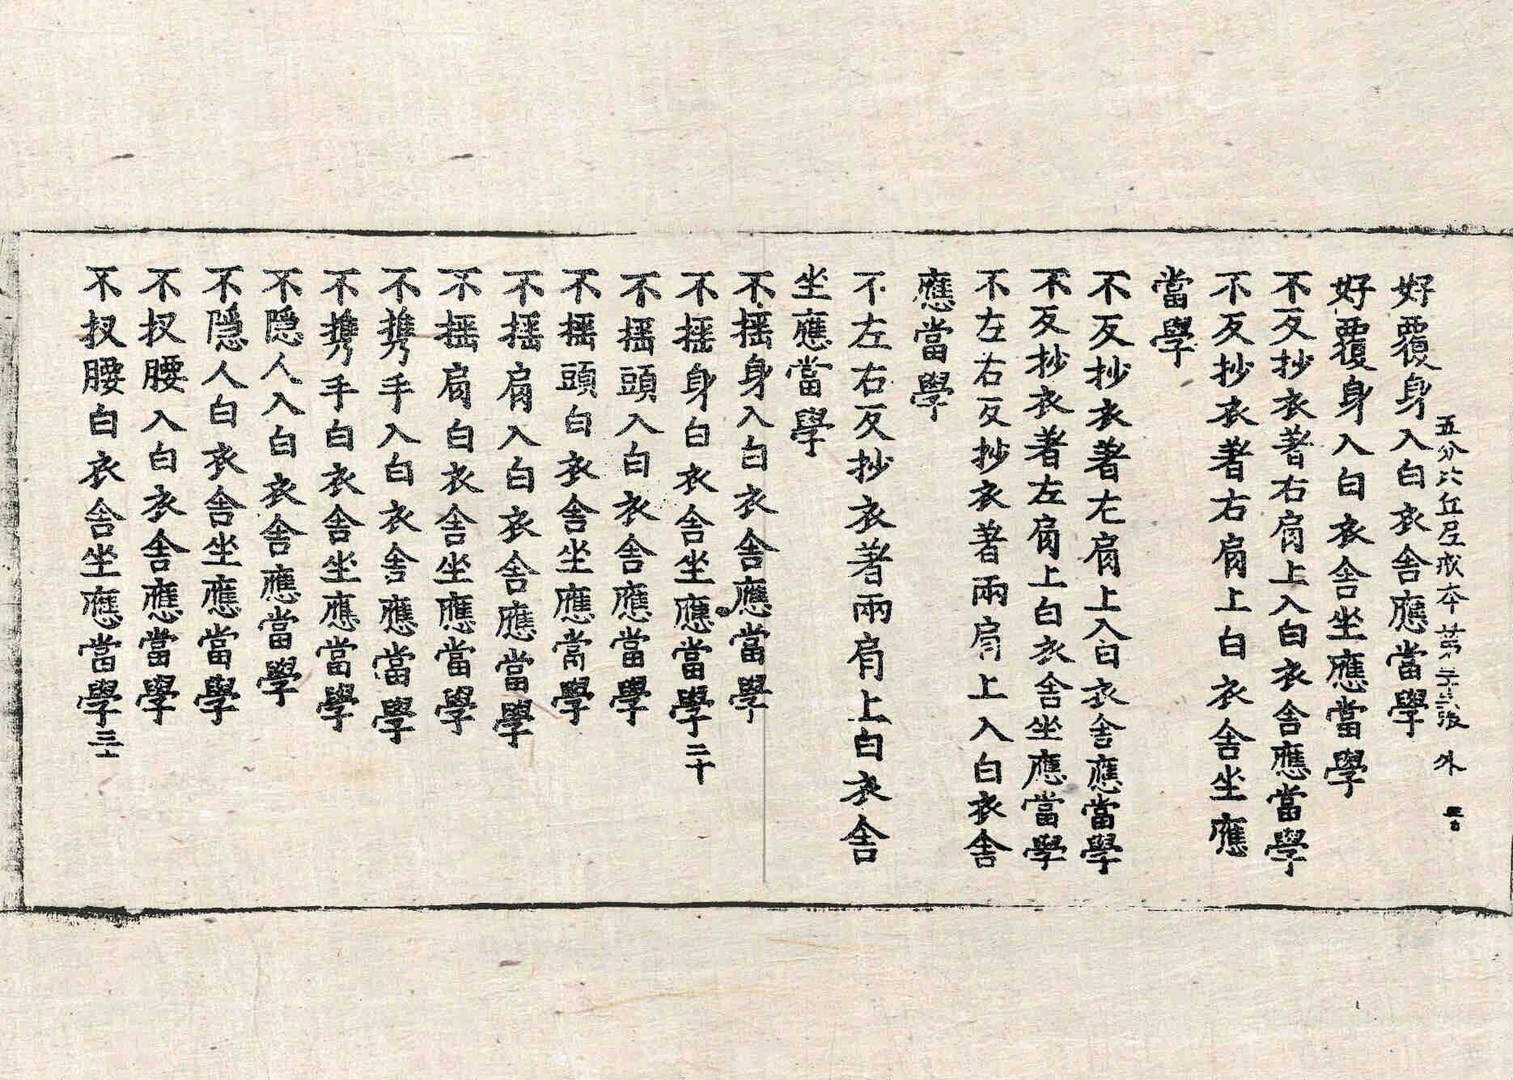 五分比丘尼戒本 第 張 外
好覆身入白衣舍應當學
好覆身入白衣舍坐應當學
不反抄衣著右肩上入白衣舍應當學
不反抄衣著右肩上白衣舍坐應
當學
不反抄衣著左肩上入白衣舍應當學
不反抄衣著左肩上白衣舍坐應當學
不左右反抄衣著兩肩上入白衣舍
應當學
不左右反抄衣著兩肩上白衣舍
坐應當學
不搖身入白衣舍應當學
不搖身白衣舍坐應當學二十
不搖頭入白衣舍應當學
不搖頭白衣舍坐應當學
不搖肩入白衣舍應當學
不搖肩白衣舍坐應當學
不攜手入白衣舍應當學
不攜手白衣舍坐應當學
不隱人入白衣舍應當學
不隱人白衣舍坐應當學
不扠腰入白衣舍應當學
不扠腰白衣舍坐應當學三十